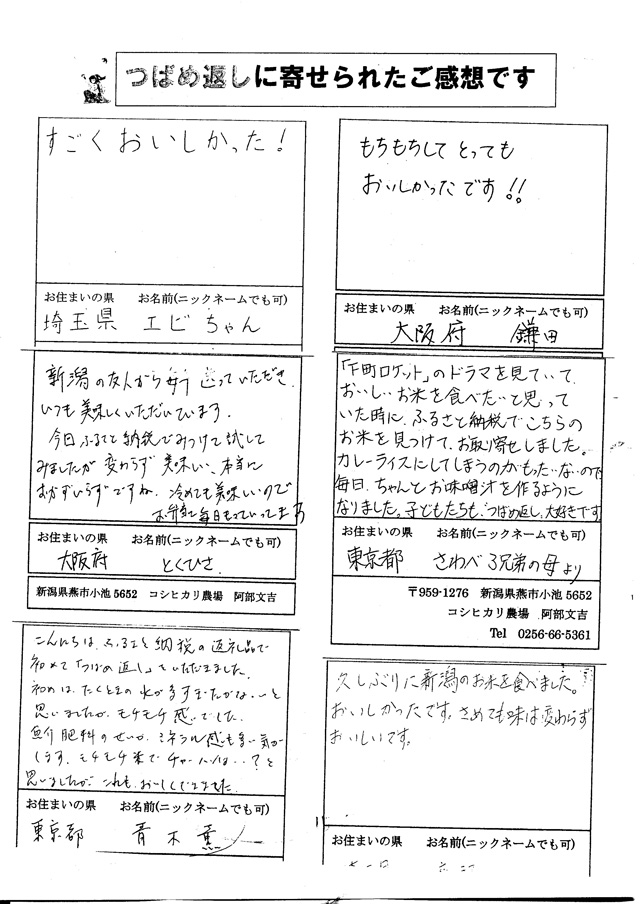 つばめ返しに寄せられたご感想です
すごくおいしかった!
お住まいの県 お名前(ニックネームでも可)
埼玉県 エビちゃん
もちもちして とっても
おいしかったです!!
お住まいの県 お名前(ニックネームでも可)
大阪府 鎌田
新潟の友人から毎年送っていただき
いつも美味しくいただいています。
今回ふるさと納税でみつけて試して
みましたが変わらず美味しい、本当に
おかずいらずですね。冷めても美味しいので
お弁当に毎日もっていってます
お住まいの県 お名前(ニックネームでも可)
大阪府 とくひさ
新潟県燕市小池5652 コシヒカリ農場 阿部文吉
「下町ロケット」のドラマを見ていて、
おいしいお米を食べたいと思って
いた時に、ふるさと納税でこちらの
お米を見つけて、お取り寄せしました。
カレーライスにしてしまうのがもったいないので
毎日、ちゃんとお味噌汁を作るように
なりました。子どもたちも、つばめ返し、大好きです
お住まいの県 お名前(ニックネームでも可)
東京都 さわべ3兄弟の母より
〒959-1276 新潟県燕市小池5652
コシヒカリ農場 阿部文吉
Tel 0256-66-5361
こんにちは、ふるさと納税の返礼品で
初めて「つばめ返し」をいただきました。
初めは、たくときの水が多すぎたかな…と
思いましたが、モチモチ感でした。
魚介肥料のせいか、ミネラル感も多い気が
します。モチモチ米でチャーハンは…?と
思いましたが、これも、おいしくできました
お住まいの県 お名前(ニックネームでも可)
東京都 青木薫
久しぶりに新潟のお米を食べました。
おいしかったです。さめても味は変わらず
おいしいです。
お住まいの県 お名前(ニックネームでも可)